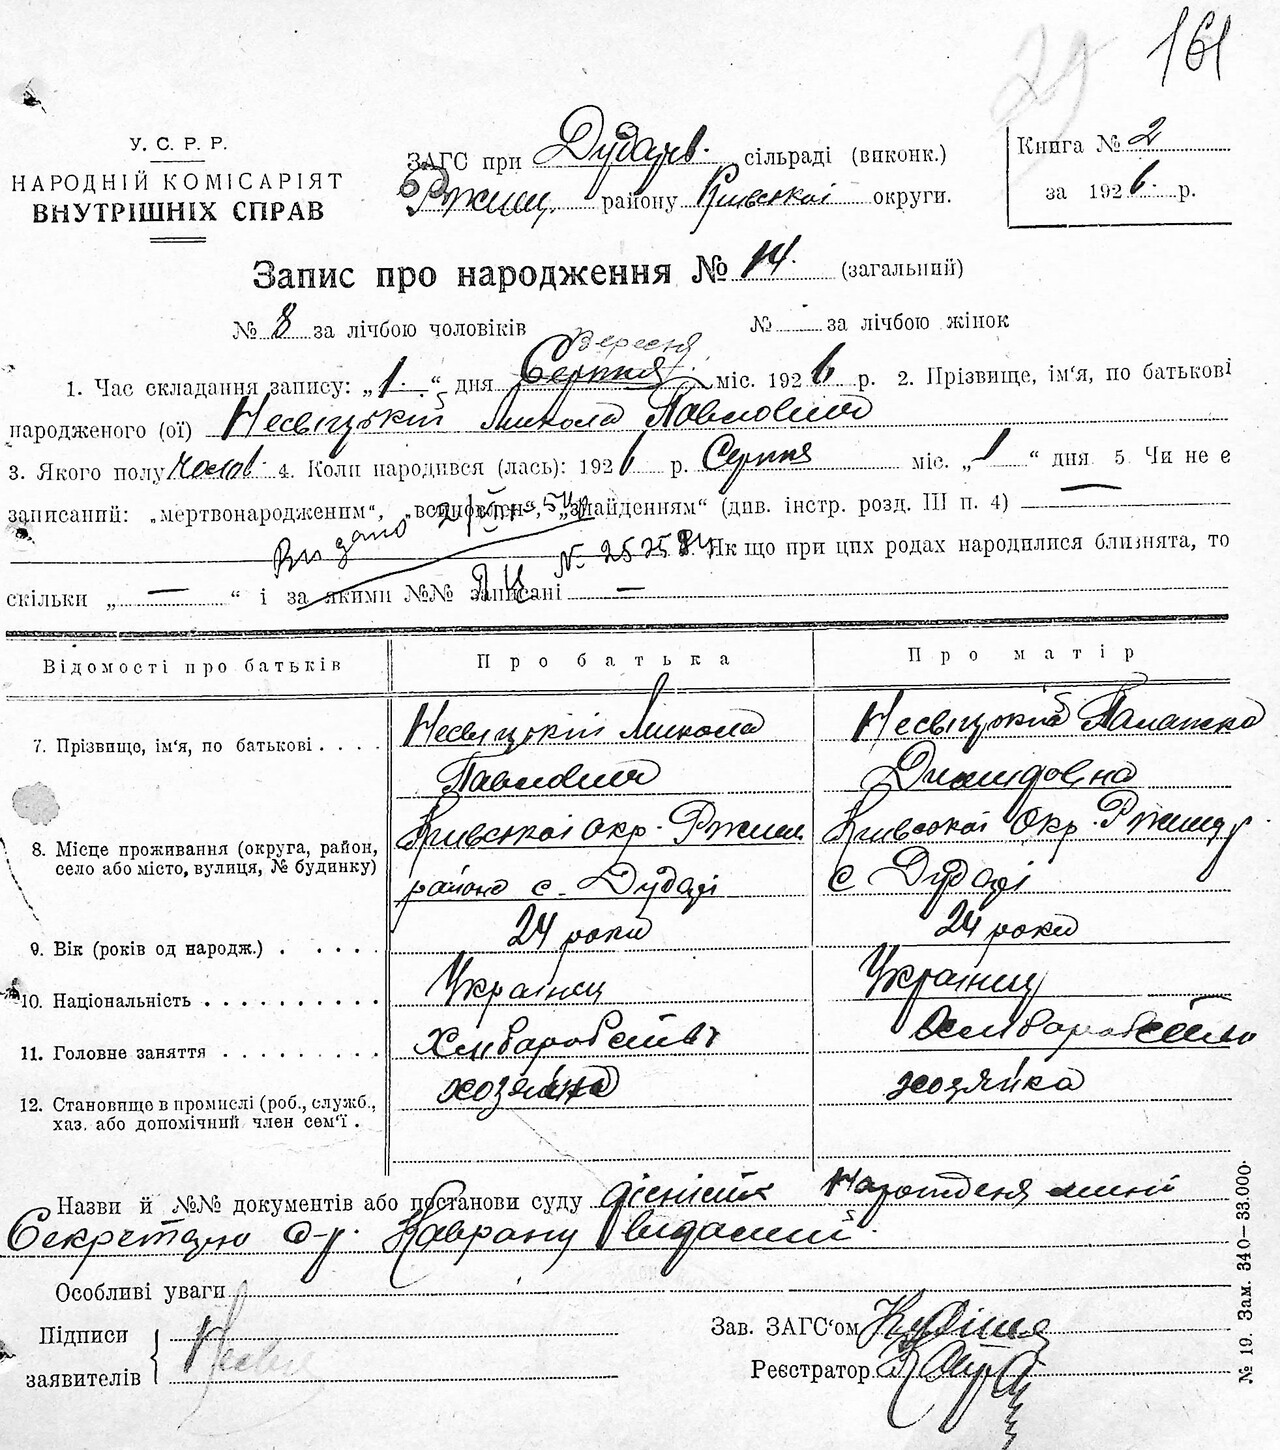 161
29
У. С. Р. Р.
НАРОДНІЙ КОМІСАРІЯТ
ВНУТРІШНІХ СПРАВ
ЗАГС при Дударів. сільраді (виконк.)
Ржищ. району Київської округи.
Книга № 2
за 1926. р.
Запис про народження № 14. (загальний)
№ 8 за лічбою чоловіків № за лічбою жінок
Вересня
1. Час складання запису: „1.“ дня Серпня міс. 1926 р. 2. Прізвище, ім'я, по батькові
народженого (ої) Несвіцький Микола Павлович
3. Якого полу чолов. 4. Коли народився (лась): 1926 р. Серпня міс. „1“ дня 5. Чи не є
записаний: „мертвонародженим“, „встановлен“, „знайденням“ (див. інстр. розд. III п. 4) —
Видано
№ 2525 Якщо при цих родах народилися близнята, то
скільки „ — “ і за якими №№ записані —
Відомості про батьків Про батька Про матір
7. Прізвище, ім'я, по батькові . . . . Несвіцький Микола Несвіцький Палажка
Павлович Димидовна
8. Місце проживання (округа, район, Київської Окр. Ржищ. Київської Окр. Ржищ
село або місто, вулиця, № будинку) района с. Дударі с Дударі
9. Вік (років од народж.) . . . . . 24 роки 24 роки
10. Національність . . . . . . . . . . Українец Українц
11. Головне заняття . . . . . . . . . Хлибаробство Хлибаробство
12. Становище в промислі (роб., служб., хозяина хозяйка
хаз. або допомічний член сем'ї .
Назви й №№ документів або постанови суду
видании
Особливі уваги
Підписи
заявителів
Несви
Зав. ЗАГС'ом
Реєстратор
№ 19. Зам. 340—33.000.